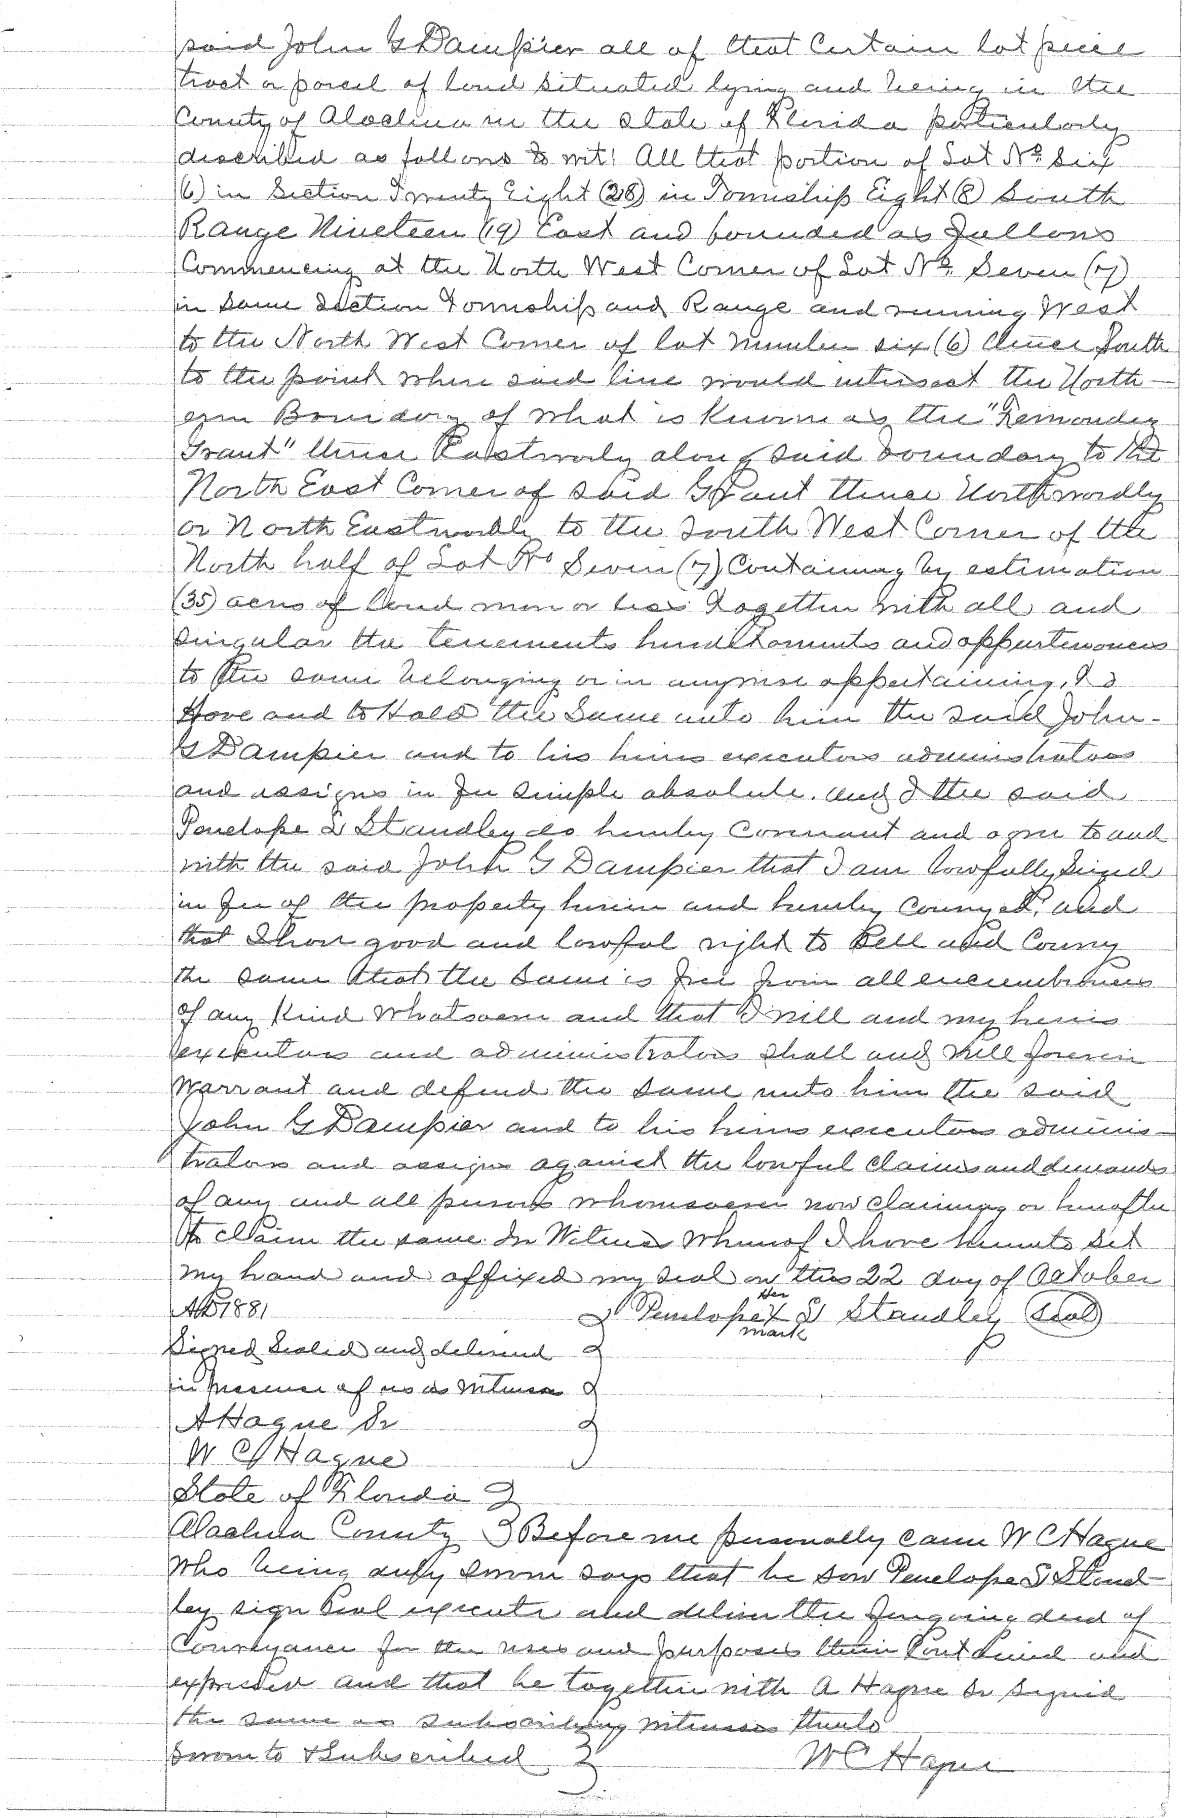 said John G Dampier all of that Certain lot piece
tract or parcel of land situated lying and being in the
County of Alachua in the State of Florida particularly
described as follows to wit: All that portion of Lot No Six
(6) in Section Twenty Eight (28) in Township Eight (8) South
Range Nineteen (19) East and bounded as follows
Commencing at the North West Corner of Lot No. Seven (7)
in same Section Township and Range and running West
to the North West Corner of lot number six (6) thence South
to the point where said line would intersect the North-
ern Boundary of what is known as the
Grant" thence Eastwardly along said boundary to the
North East Corner of said Grant thence Northwardly
or North Eastwardly to the South West Corner of the
North half of Lot No Seven (7) Containing by estimation
(35) acres of land more or less Together with all and
singular the tenements hereditaments and appurtenances
to the same belonging or in anywise appertaining, To
Have and to Hold the Same unto him the said John
G Dampier and to his heirs executors administrators
and assigns in fee simple absolute. and I the said
Penelope S Standley do hereby Covenant and agree to and
with the said John G Dampier that I am lawfully Seized
in fee of the property herein and hereby conveyed, and
that I have good and lawful right to Sell and Convey
the same that the same is free from all encumbrances
of any kind whatsoever and that I will and my heirs
executors and administrators shall and will forever
Warrant and defend the same unto him the said
John G Dampier and to his heirs executors adminis-
trators and assigns against the lawful claims and demands
of any and all persons whomsoever now claiming or hereafter
to claim the same. In Witness Whereof I have hereunto Set
my hand and affixed my seal on this 22 day of October
AD 1881 Penelope Her X mark S Standley (Seal)
Signed Sealed and delivered
in presence of us as witnesses
A Hague Sr
W C Hague
State of Florida
Alachua County Before me personally came W C Hague
Who being duly sworn says that he saw Penelope S Stand-
ley sign Seal execute and deliver the foregoing deed of
Conveyance for the uses and purposes therein Contained and
expressed and that he together with A Hague Sr Signed
the same as subscribing witnesses thereto
Sworn to & Subscribed W C Hague